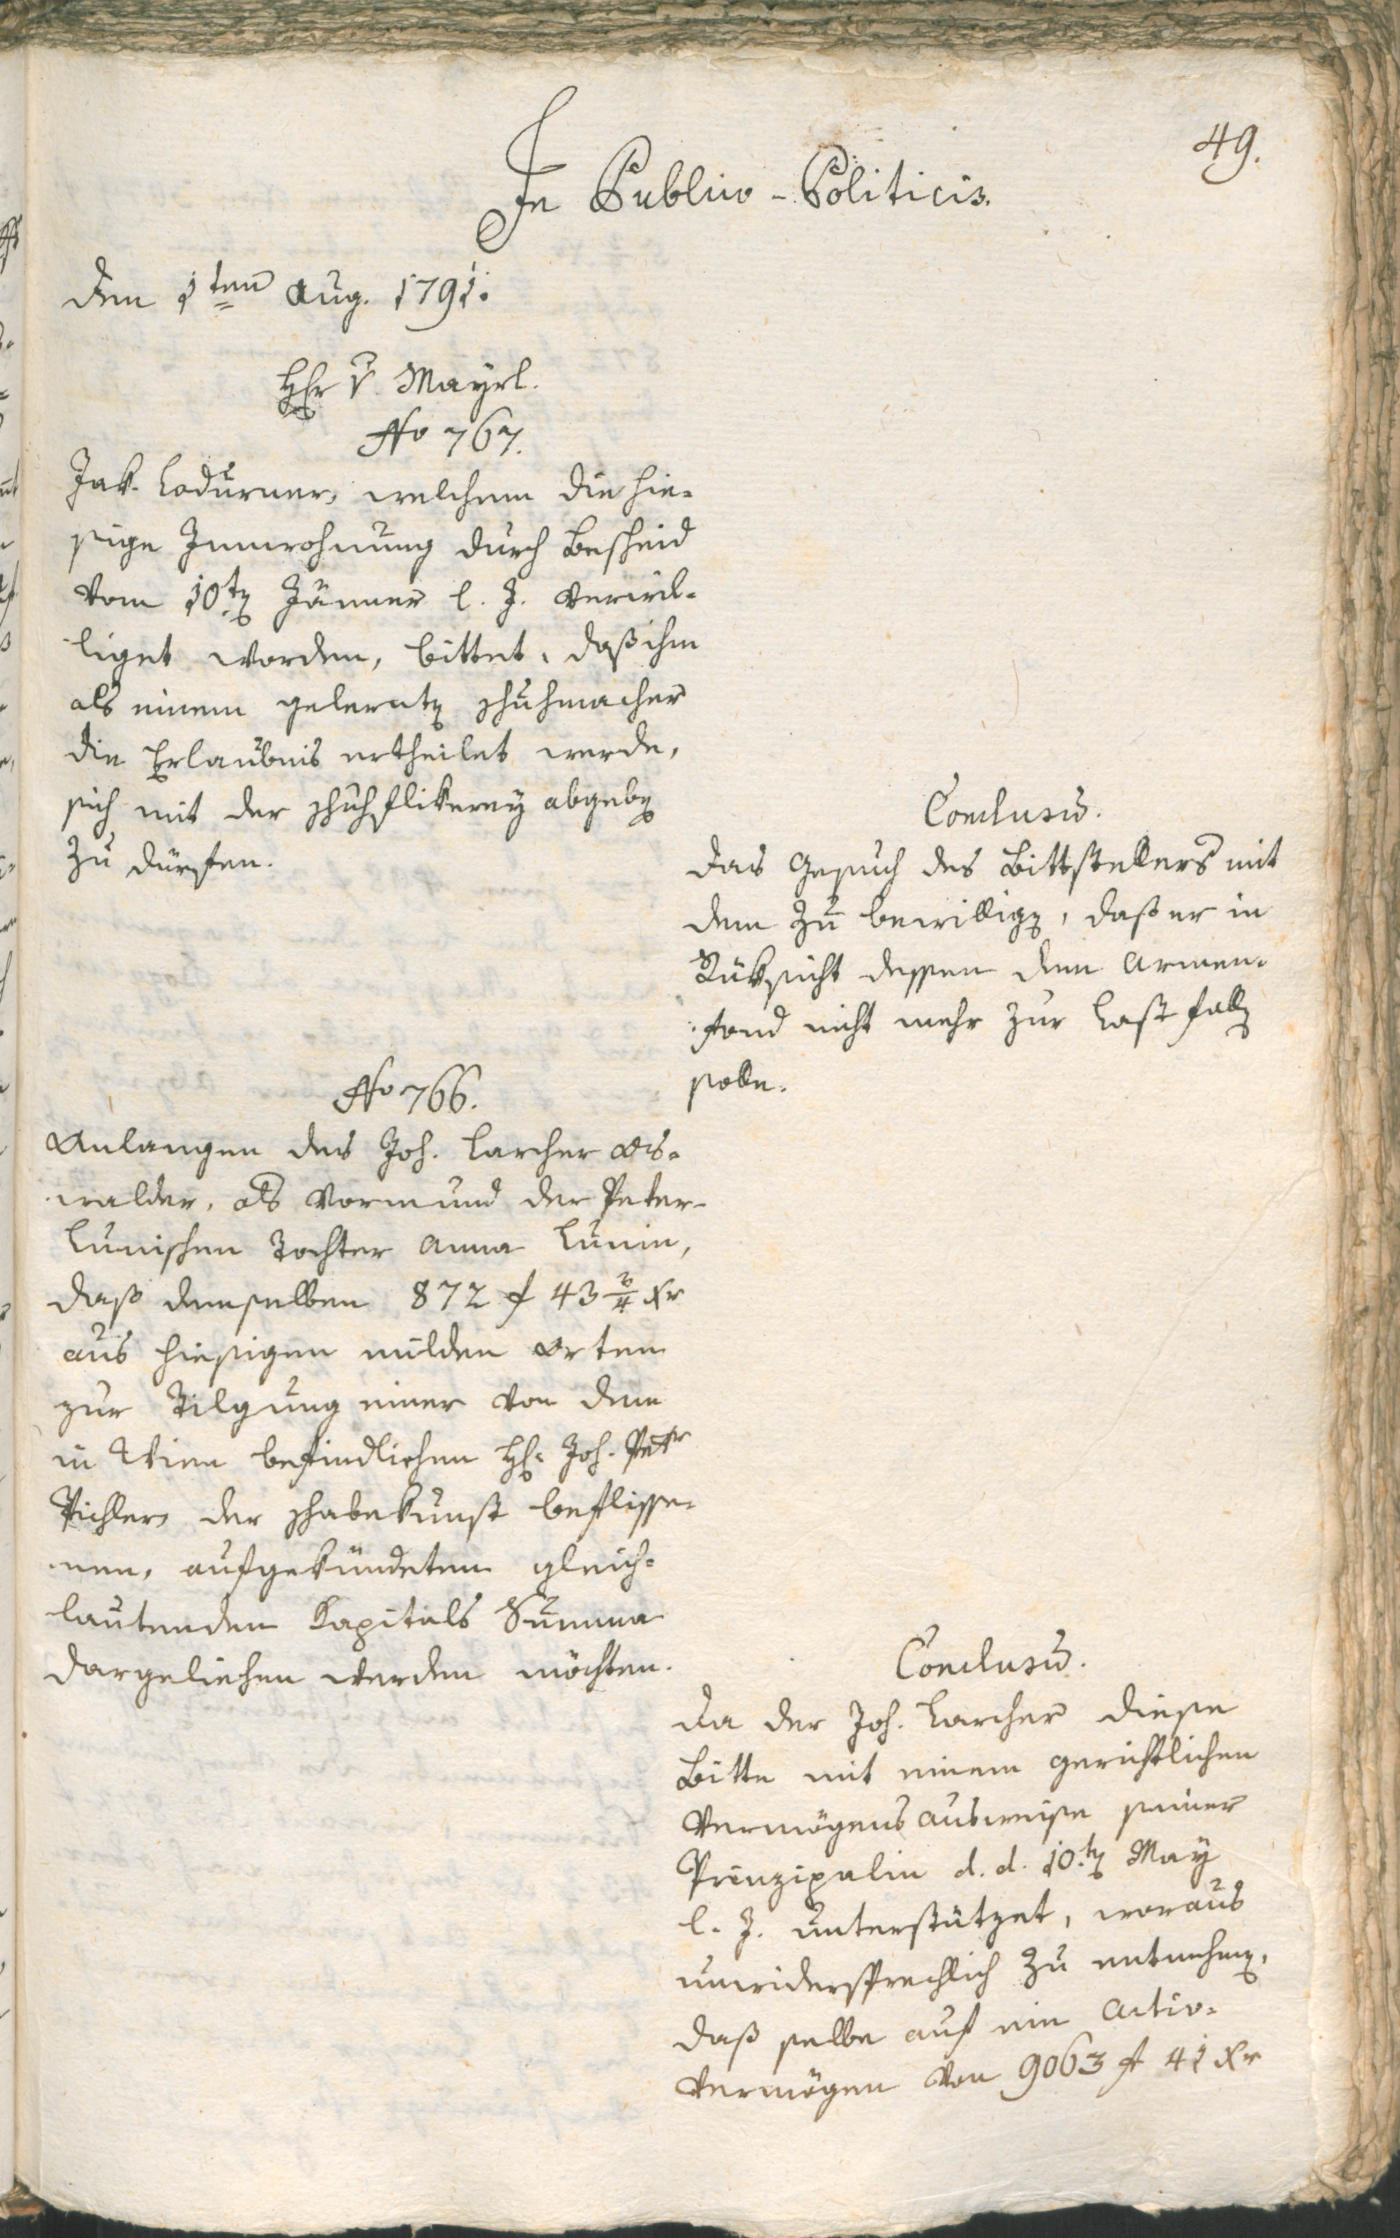 49.
In Publico-Politicis.
den 1ten Aug. 1791.
Hr v Mayrl.
No 767.
Jak. Ladurner, welchem die hie-
sige Innwohnung durch Bescheid
vom 10ten Jänner l. J. verwil-
liget worden, bittet, daß ihm
als einem gelernten Schuhmacher
die Erlaubnis ertheilet werde,
sich mit der Schuhflikerey abgeben
zu dürfen.
Conclusum.
das Gesuch des Bittstellers mit
dem zu bewilligen, daß er in
Rüksicht dessen dem Armen-
fond nicht mehr zur Last fallen
solle.
No 766.
Anlangen des Joh. Larcher Os-
walder, als Vormund der Peter-
Lunischen Tochter Anna Lunin,
daß demselben 872 f 43 2/4 xr
aus hiesigen milden Orten
zur Tilgung einer von dem
in Wien befindlichen H: Joh. Petr
Pichler, der Schabekunst beflisse-
nen, aufgekündeten gleich-
lautenden Kapitals Summa
dargeliehen werden möchten.
Conclusum.
Da der Joh. Larcher diese
Bitte mit einem gerichtlichen
Vermögens Ausweise seiner
Prinzipalin d. d. 10ten May
l. J. unterstützet, woraus
unwidersprechlich zu entnehmen,
daß selbe auf ein Activ-
Vermögen von 9063 f 41 xr